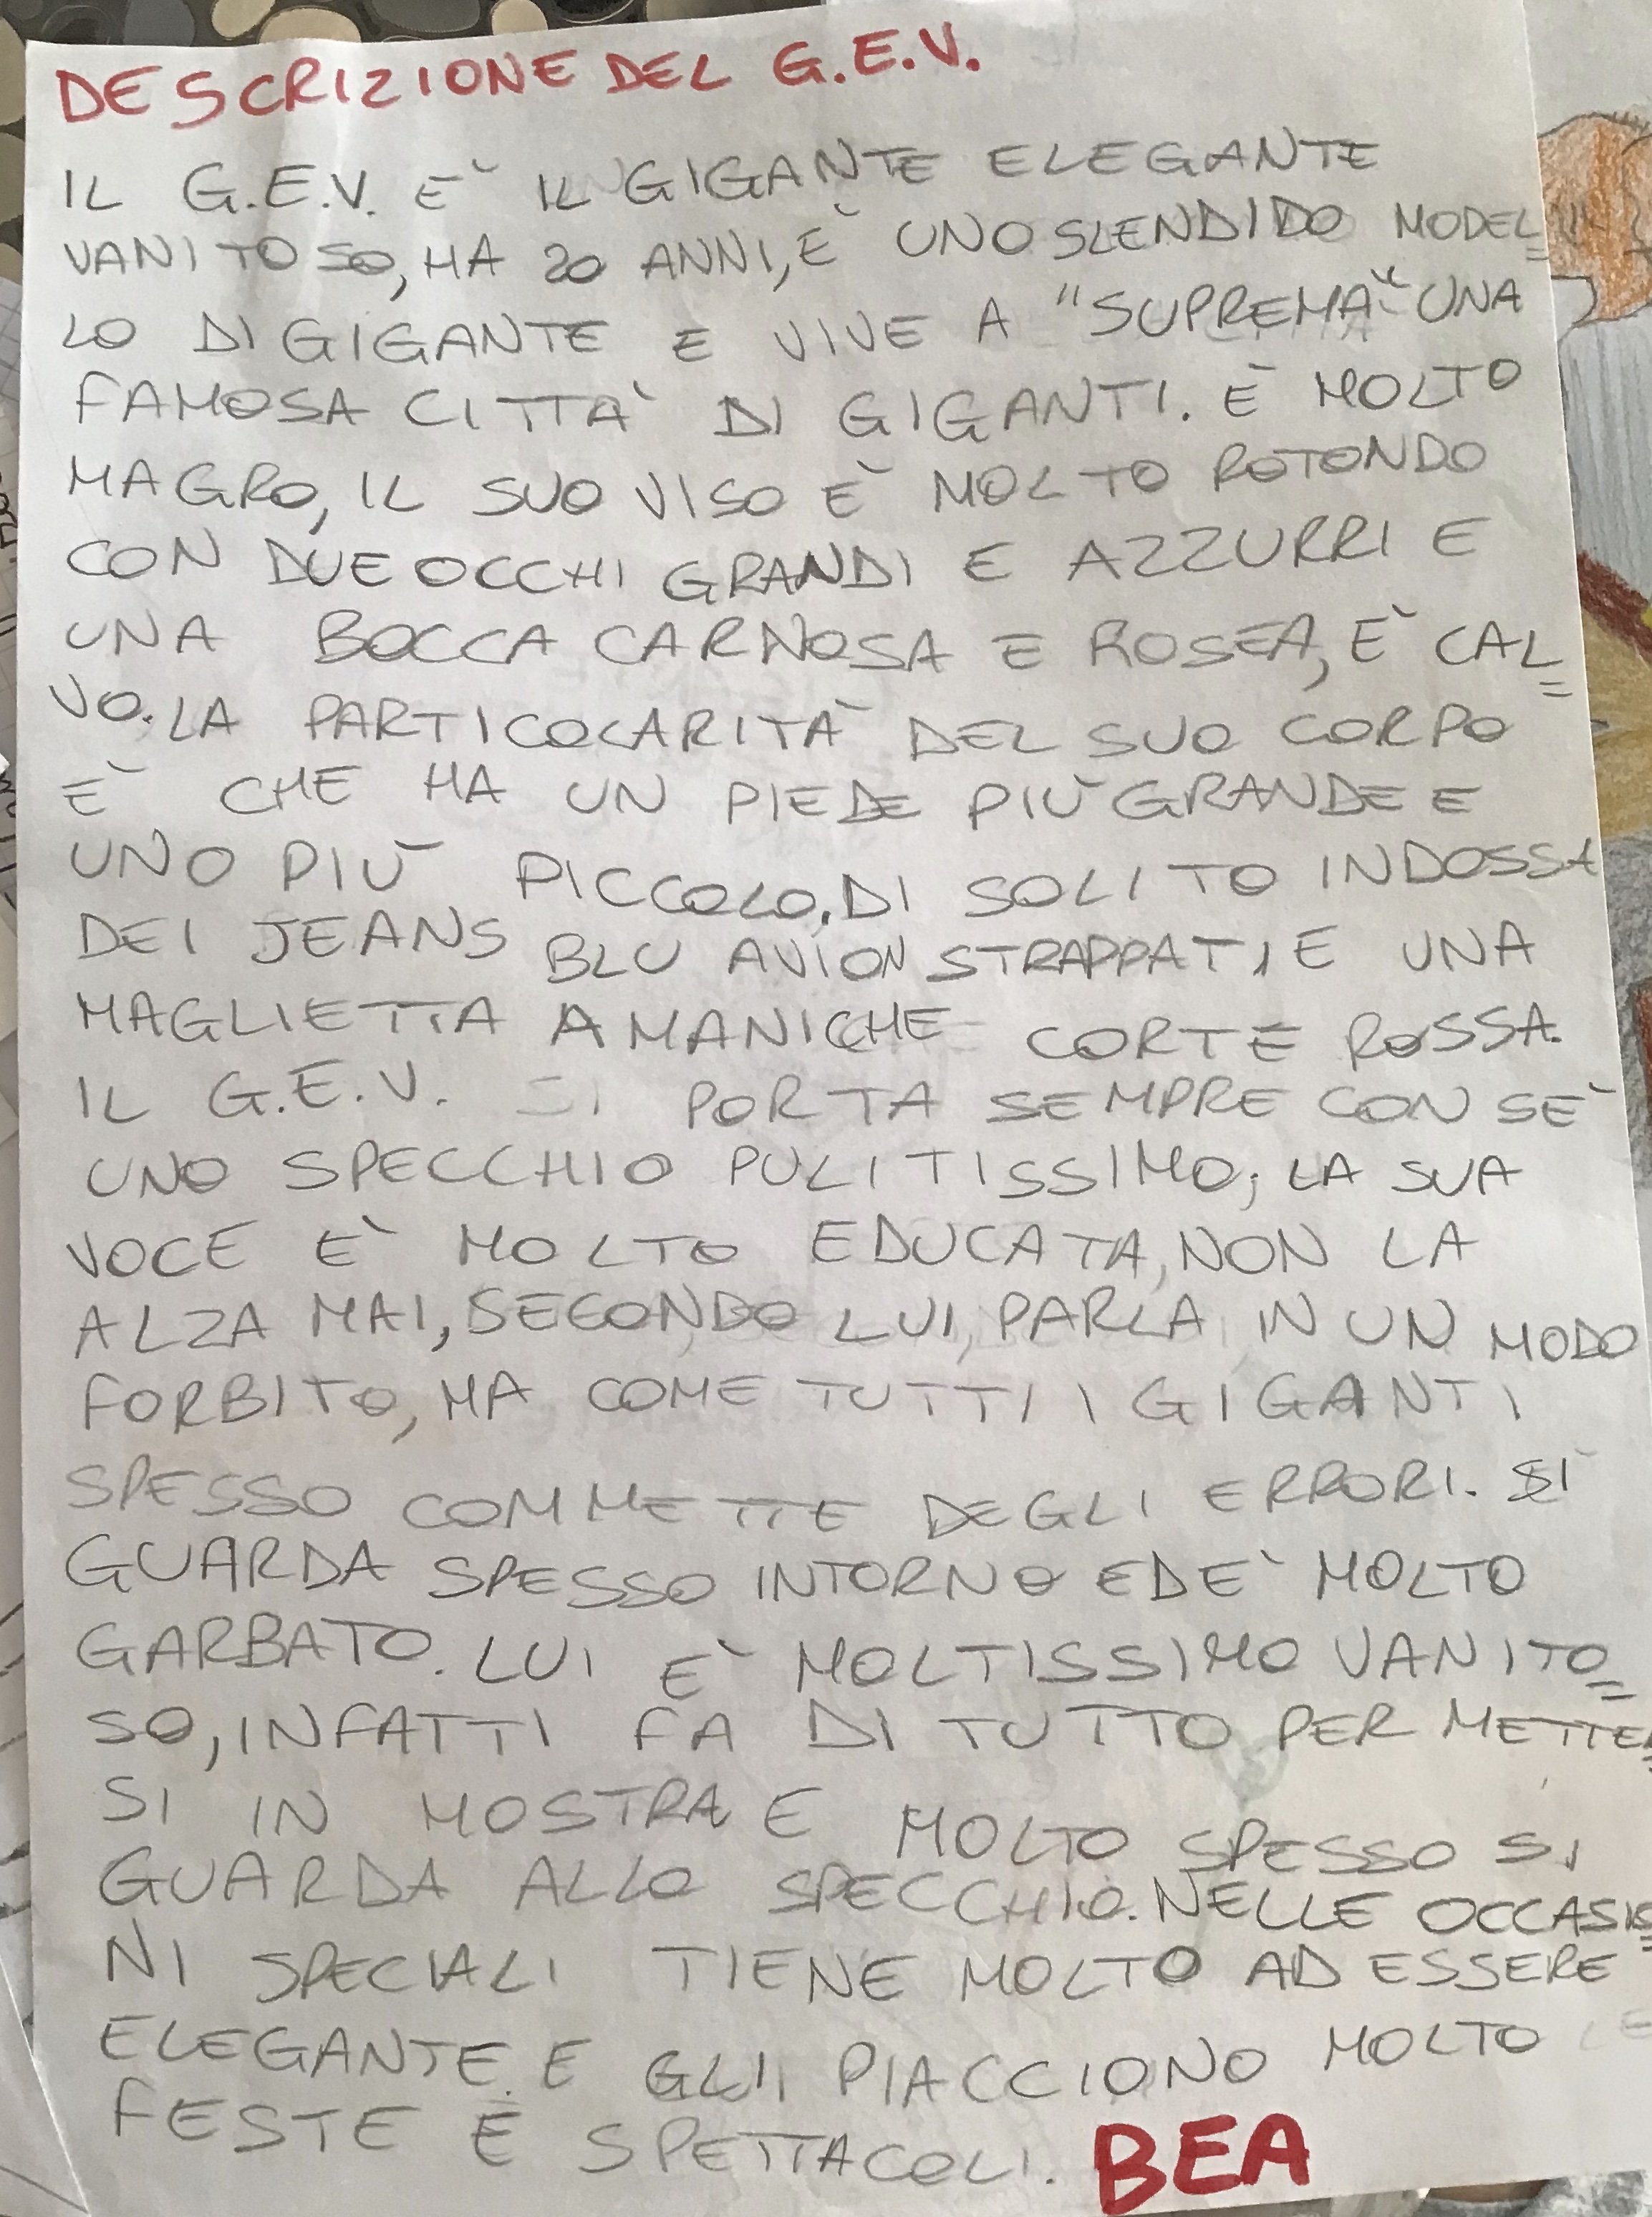 DESCRIZIONE DEL G.E.V.
IL G.E.V. È IL GIGANTE ELEGANTE
VANITOSO, HA 20 ANNI, È UNO SLENDIDO MODEL=
LO DI GIGANTE E VIVE A "SUPREMA" UNA
FAMOSA CITTÀ DI GIGANTI. È MOLTO
MAGRO, IL SUO VISO È MOLTO ROTONDO
CON DUE OCCHI GRANDI E AZZURRI E
UNA BOCCA CARNOSA E ROSEA, È CAL=
VO. LA PARTICOLARITÀ DEL SUO CORPO
È CHE HA UN PIEDE PIÙ GRANDE E
UNO PIÙ PICCOLO. DI SOLITO INDOSSA
DEI JEANS BLU AVION STRAPPATI, E UNA
MAGLIETTA A MANICHE CORTE ROSSA.
IL G.E.V. SI PORTA SEMPRE CON SÈ
UNO SPECCHIO PULITISSIMO; LA SUA
VOCE È MOLTO EDUCATA, NON LA
ALZA MAI, SECONDO LUI, PARLA IN UN MODO
FORBITO, MA COME TUTTI I GIGANTI
SPESSO COMMETTE DEGLI ERRORI. SI
GUARDA SPESSO INTORNO ED È MOLTO
GARBATO. LUI È MOLTISSIMO VANITO=
SO, INFATTI FA DI TUTTO PER METTER=
SI IN MOSTRA E MOLTO SPESSO SI
GUARDA ALLO SPECCHIO. NELLE OCCASIO=
NI SPECIALI TIENE MOLTO AD ESSERE
ELEGANTE E GLI PIACCIONO MOLTO LE
FESTE E SPETTACOLI. BEA